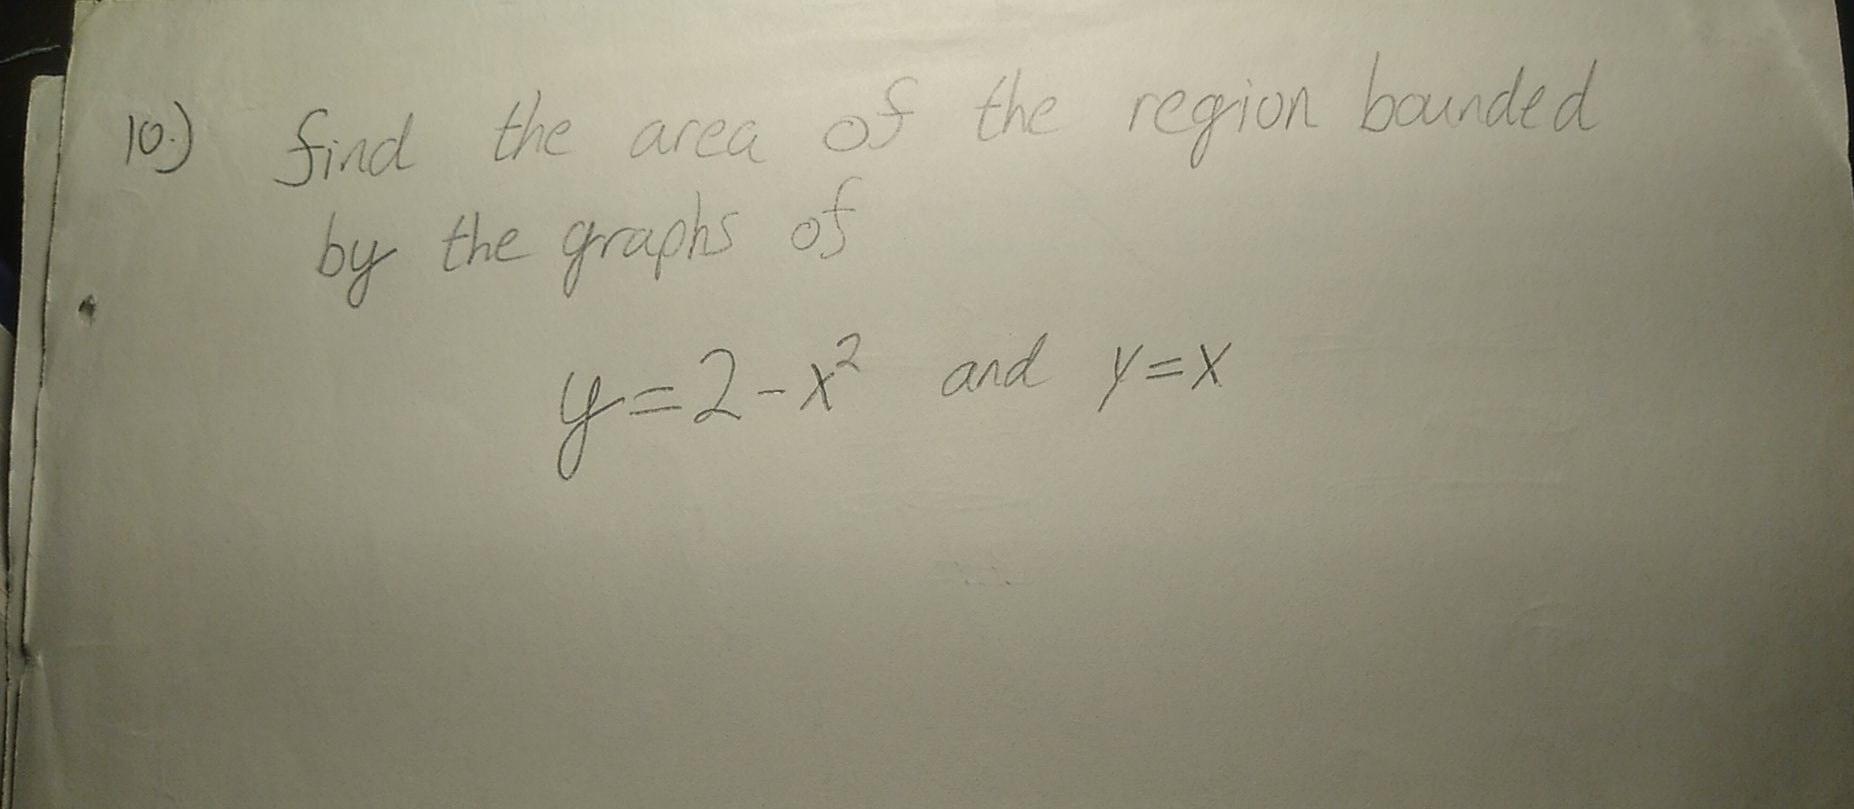 10.) find the area of the region bounded
by the graphs of
y=2-x² and y=x